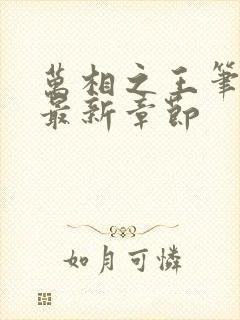 萬相之王筆
最新章節
如月可憐